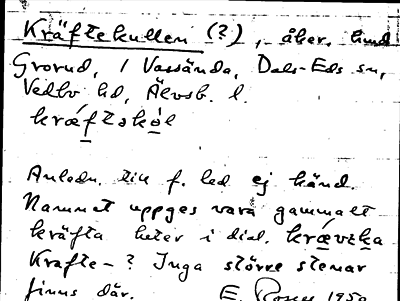 Kräftekullen (?), åker, hmd
Grorud, 1 Vassända, Dals-Eds sn,
Vedbo hd, Älvsb. l.
kræftəkəl
Anledn. till f. led ej känd.
Namnet uppges vara gammalt
kräfta heter i dial. krævtka
Krafte-? Inga större stenar
finns där. E. Rosell 1950